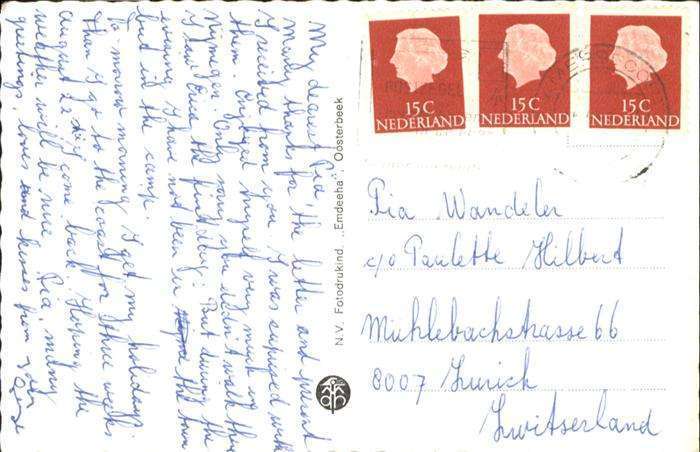 My dearest Pia, the letter and present
Many thanks for
I received from you I was surprised with
them. Enjoyed myself very much in
Nijmegen Only sorry you didn't walk then
I saw the first day. But during the
evening I have not been in the town
but in the camp.
To morrow morning I get my holidays.
Than I go to the coast for three weeks
August 22 I come back. Hoping the
weather will be nice Pia, many
greetings, loves and kisses from your
N.V. Fotodrukind. „Emdeeha", Oosterbeek
15 C
NEDERLAND
15 C
NEDERLAND
15 C
NEDERLAND
Pia Wandeler
c/o Paulette Hilbert
Mühlebachstrasse 66
8007 Zurich
Zwitserland